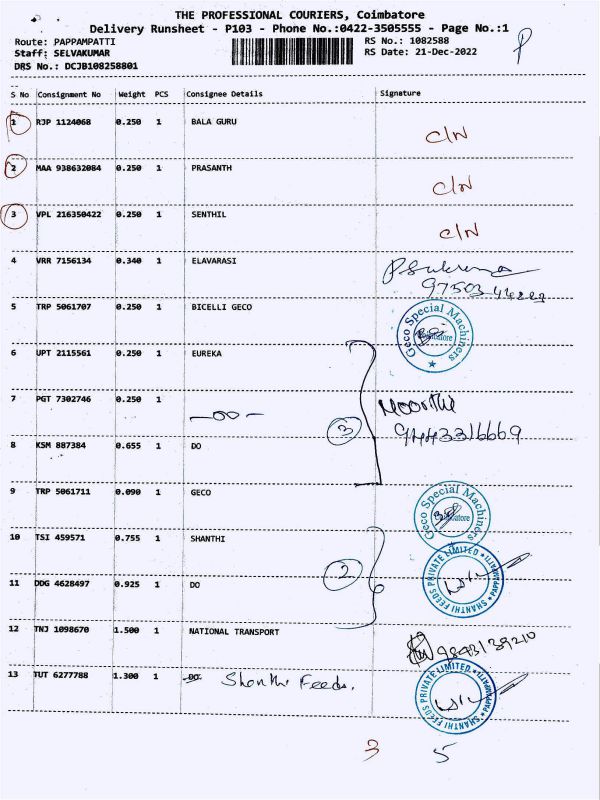 THE PROFESSIONAL COURIERS, Coimbatore
Delivery Runsheet - P103 - Phone No.:0422-3505555 - Page No.:1
Route: PAPPAMPATTI RS No.: 1082588
Staff: SELVAKUMAR RS Date: 21-Dec-2022
DRS No.: DCJB108258801
P
S No Consignment No Weight PCS Consignee Details Signature
1 RJP 1124068 0.250 1 BALA GURU C/N
2 MAA 938632084 0.250 1 PRASANTH C/N
3 VPL 216350422 0.250 1 SENTHIL C/N
4 VRR 7156134 0.340 1 ELAVARASI
5 TRP 5061707 0.250 1 BICELLI GECO
Geco Special Machiners Coimbatore
6 UPT 2115561 0.250 1 EUREKA
7 PGT 7302746 0.250 1 -oo- Moorthi
3 9443316669
8 KSM 887384 0.655 1 DO
9 TRP 5061711 0.090 1 GECO
Geco Special Machiners Coimbatore
10 TSI 459571 0.755 1 SHANTHI
2
11 DDG 4628497 0.925 1 DO
SHANTHI FEEDS PRIVATE LIMITED PAPPAMPATTI
12 TNJ 1098670 1.500 1 NATIONAL TRANSPORT 9843139210
13 TUT 6277788 1.300 1 DO Shanthi Feeds.
SHANTHI FEEDS PRIVATE LIMITED PAPPAMPATTI
3 5